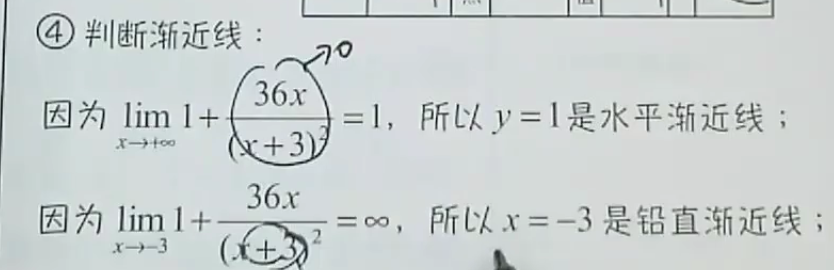 ④ 判断渐近线：
→0
因为 lim x→+∞ 1+ 36x/(x+3)² =1，所以 y=1是水平渐近线；
因为 lim x→-3 1+ 36x/(x+3)² =∞，所以 x=-3 是铅直渐近线；